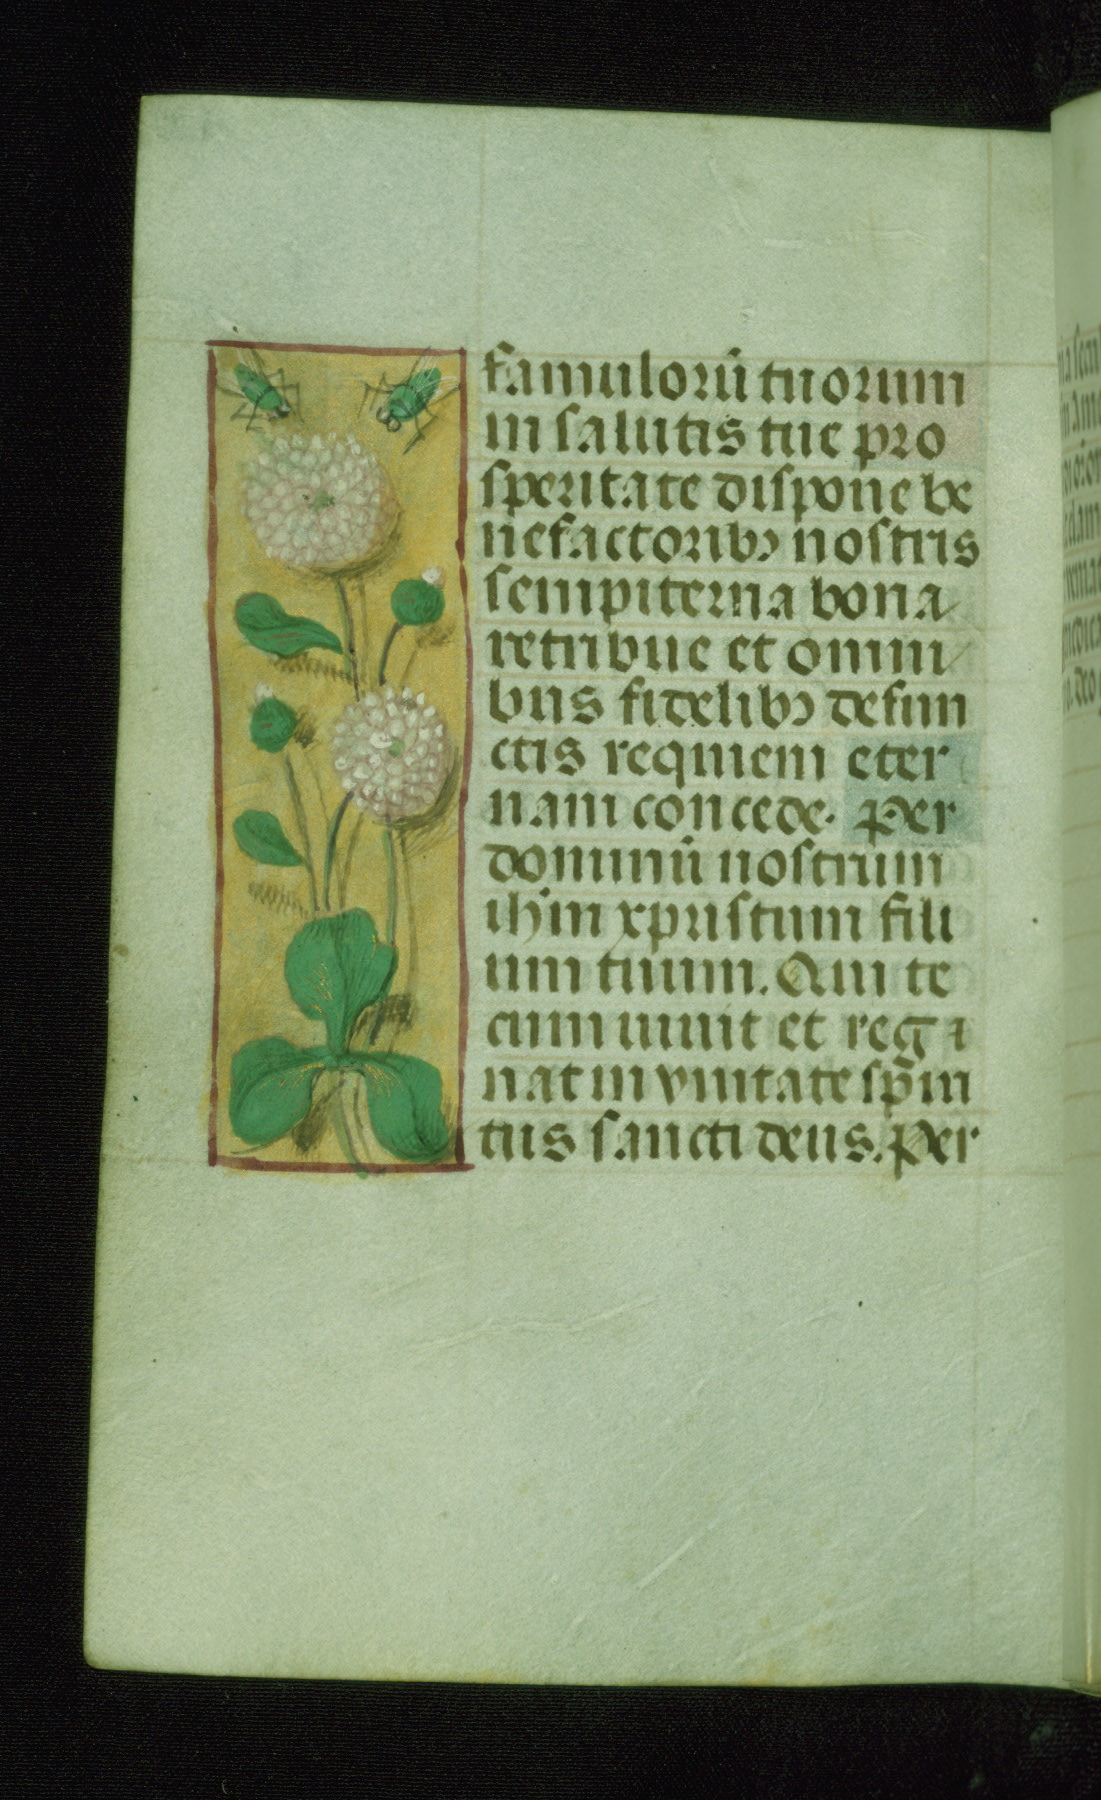 famulorū tuorum
in salutis tue pro
speritate dispone be
nefactorib⁊ nostris
sempiterna bona
retribue et omni
bus fidelib⁊ defun
ctis requiem eter
nam concede. Per
dominū nostrum
ihm xpristum fili
um tuum. Qui te
cum uiuit et reg
nat in vnitate sp̄iri
tus sancti deus. Per